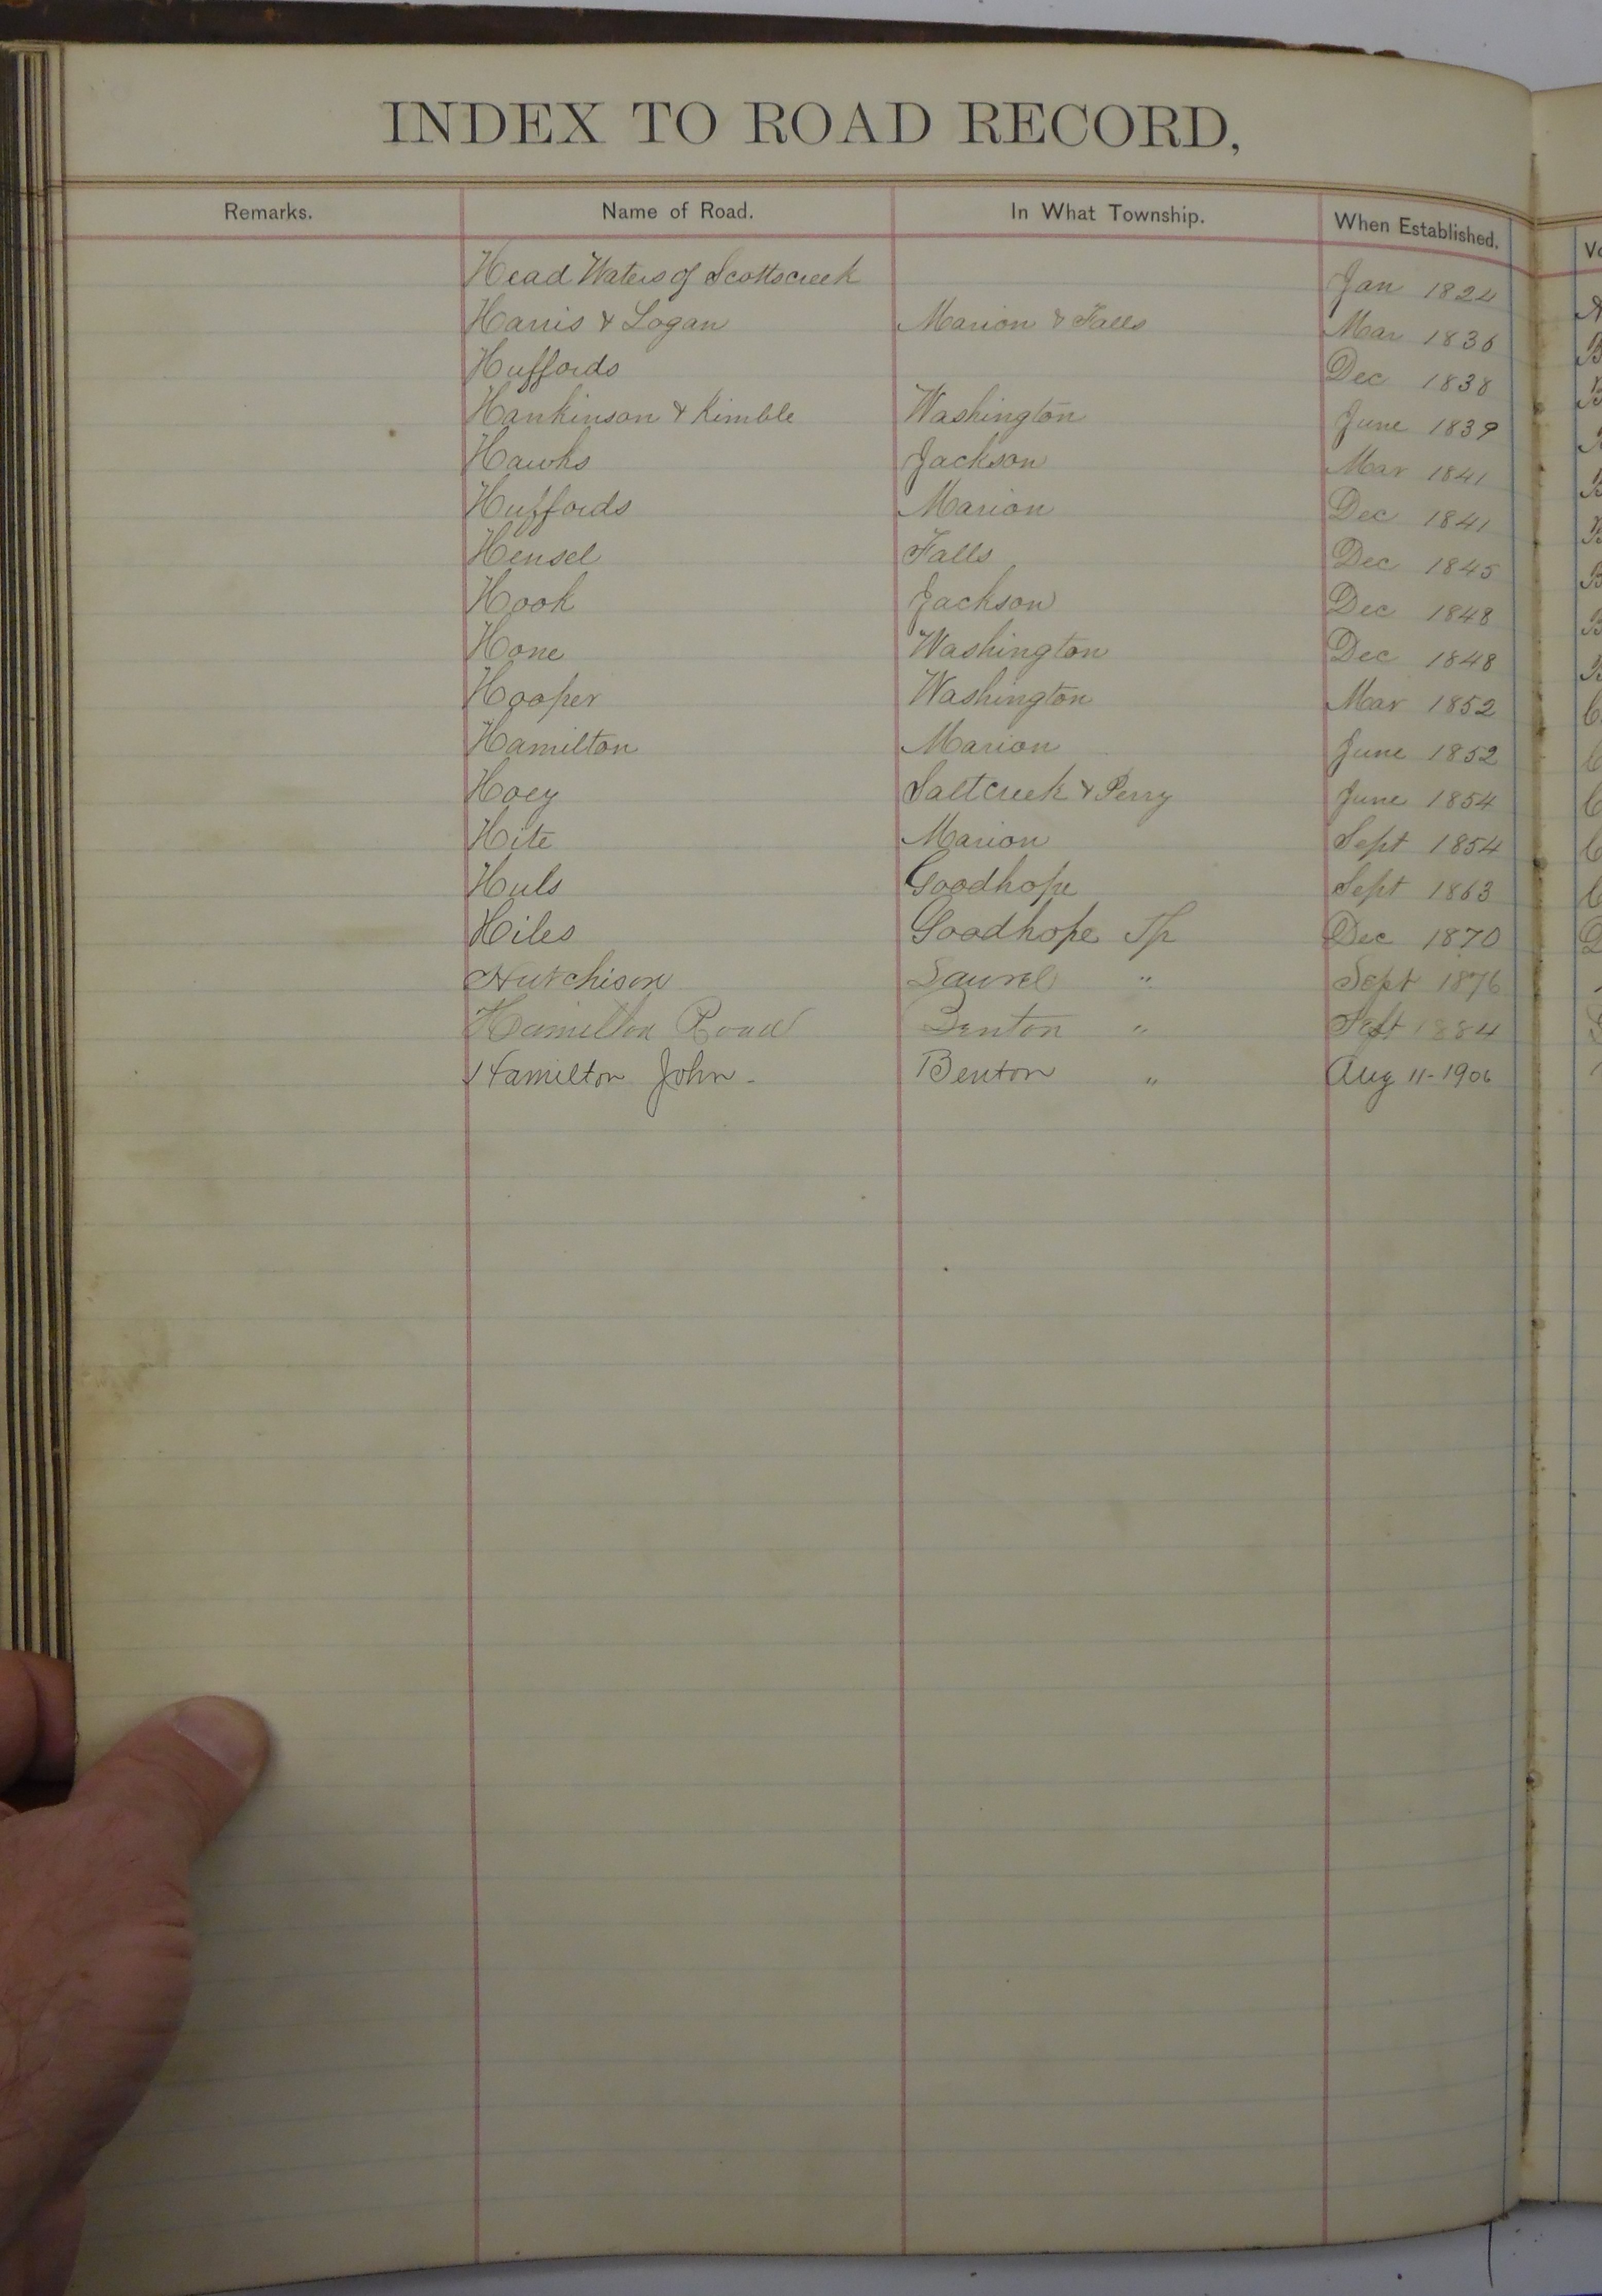 INDEX TO ROAD RECORD,
Remarks. Name of Road. In What Township. When Established.
Head Waters of Scottscreek Jan 1824
Harris & Logan Marion & Falls Mar 1836
Huffords Dec 1838
Hankinson & Kimble Washington June 1839
Hawks Jackson Mar 1841
Huffords Marion Dec 1841
Hensel Falls Dec 1845
Hook Jackson Dec 1848
Hone Washington Dec 1848
Hooper Washington Mar 1852
Hamilton Marion June 1852
Hoey Saltcreek & Perry June 1854
Hite Marion Sept 1854
Huls Goodhope Sept 1863
Hiles Goodhope Tp Dec 1870
Hutchison Laurel " Sept 1876
Hamilton Road Benton " Sept 1884
Hamilton John - Benton " Aug 11-1906